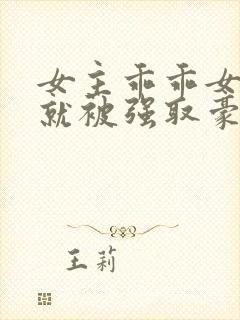 女主乖乖女
就被强取豪
王莉